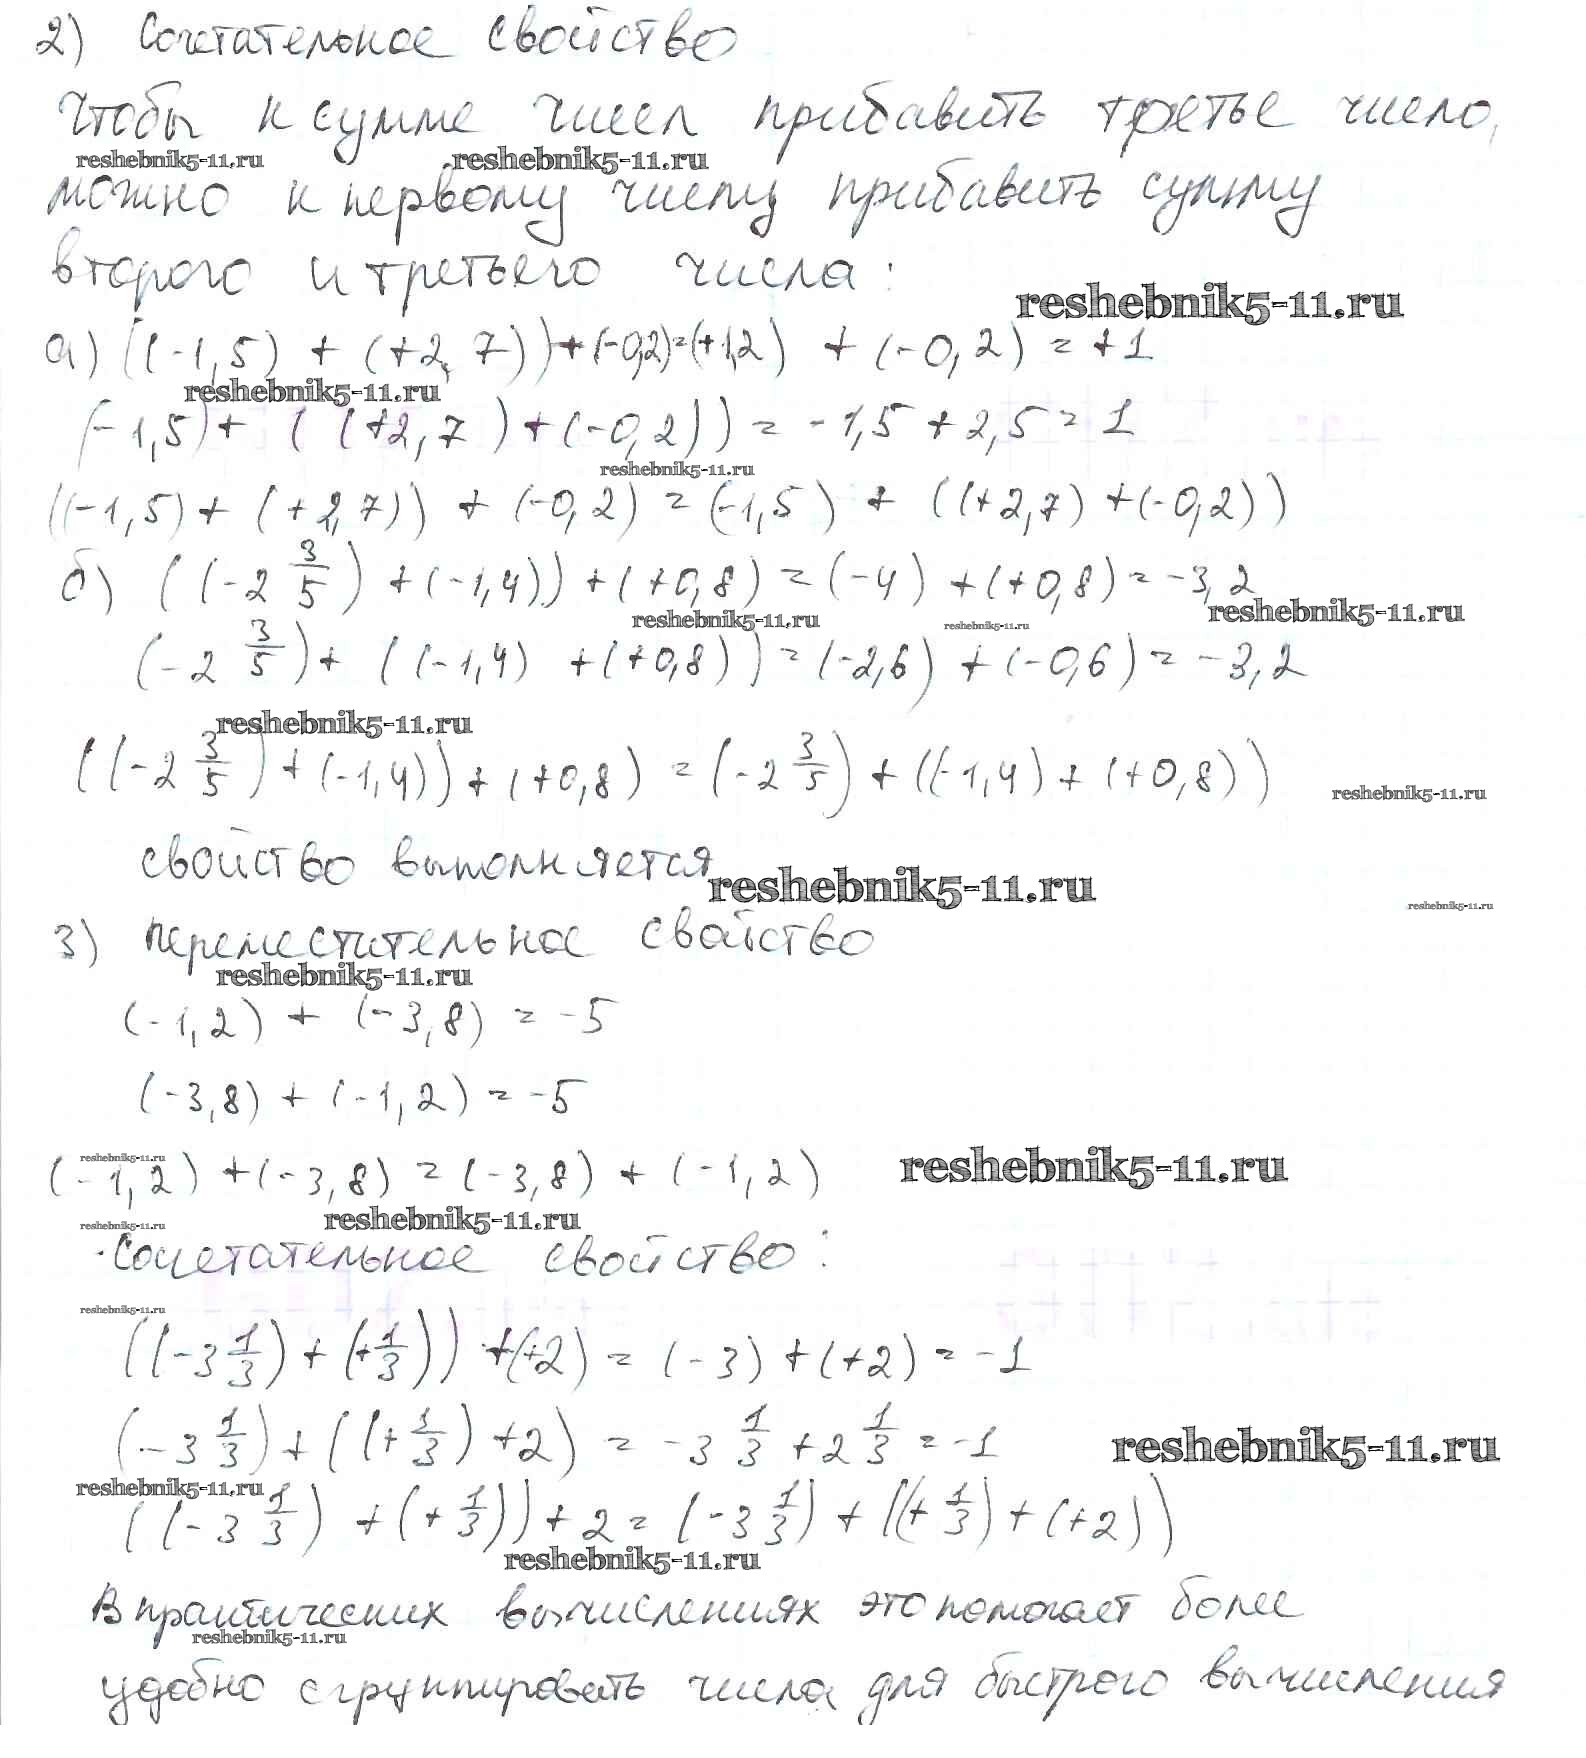 2) Сочетательное свойство
Чтобы к сумме чисел прибавить третье число,
reshebnik5-11.ru reshebnik5-11.ru
можно к первому числу прибавить сумму
второго и третьего числа:
reshebnik5-11.ru
а) ((-1,5) + (+2,7)) + (-0,2) = (+1,2) + (-0,2) = +1
reshebnik5-11.ru
(-1,5) + ((+2,7) + (-0,2)) = -1,5 + 2,5 = 1
reshebnik5-11.ru
((-1,5) + (+2,7)) + (-0,2) = (-1,5) + ((+2,7) + (-0,2))
б) ((-2 3/5) + (-1,4)) + (+0,8) = (-4) + (+0,8) = -3,2
reshebnik5-11.ru reshebnik5-11.ru reshebnik5-11.ru
(-2 3/5) + ((-1,4) + (+0,8)) = (-2,6) + (-0,6) = -3,2
reshebnik5-11.ru
((-2 3/5) + (-1,4)) + (+0,8) = (-2 3/5) + ((-1,4) + (+0,8))
reshebnik5-11.ru
свойство выполняется
reshebnik5-11.ru reshebnik5-11.ru
3) переместительное свойство
reshebnik5-11.ru
(-1,2) + (-3,8) = -5
(-3,8) + (-1,2) = -5
reshebnik5-11.ru
(-1,2) + (-3,8) = (-3,8) + (-1,2)
reshebnik5-11.ru
reshebnik5-11.ru reshebnik5-11.ru
Сочетательное свойство:
reshebnik5-11.ru
((-3 1/3) + (+1/3)) + (+2) = (-3) + (+2) = -1
(-3 1/3) + ((+1/3) + 2) = -3 1/3 + 2 1/3 = -1
reshebnik5-11.ru
reshebnik5-11.ru
((-3 1/3) + (+1/3)) + 2 = (-3 1/3) + ((+1/3) + (+2))
reshebnik5-11.ru
В практических вычислениях это помогает более
reshebnik5-11.ru
удобно сгруппировать числа для быстрого вычисления